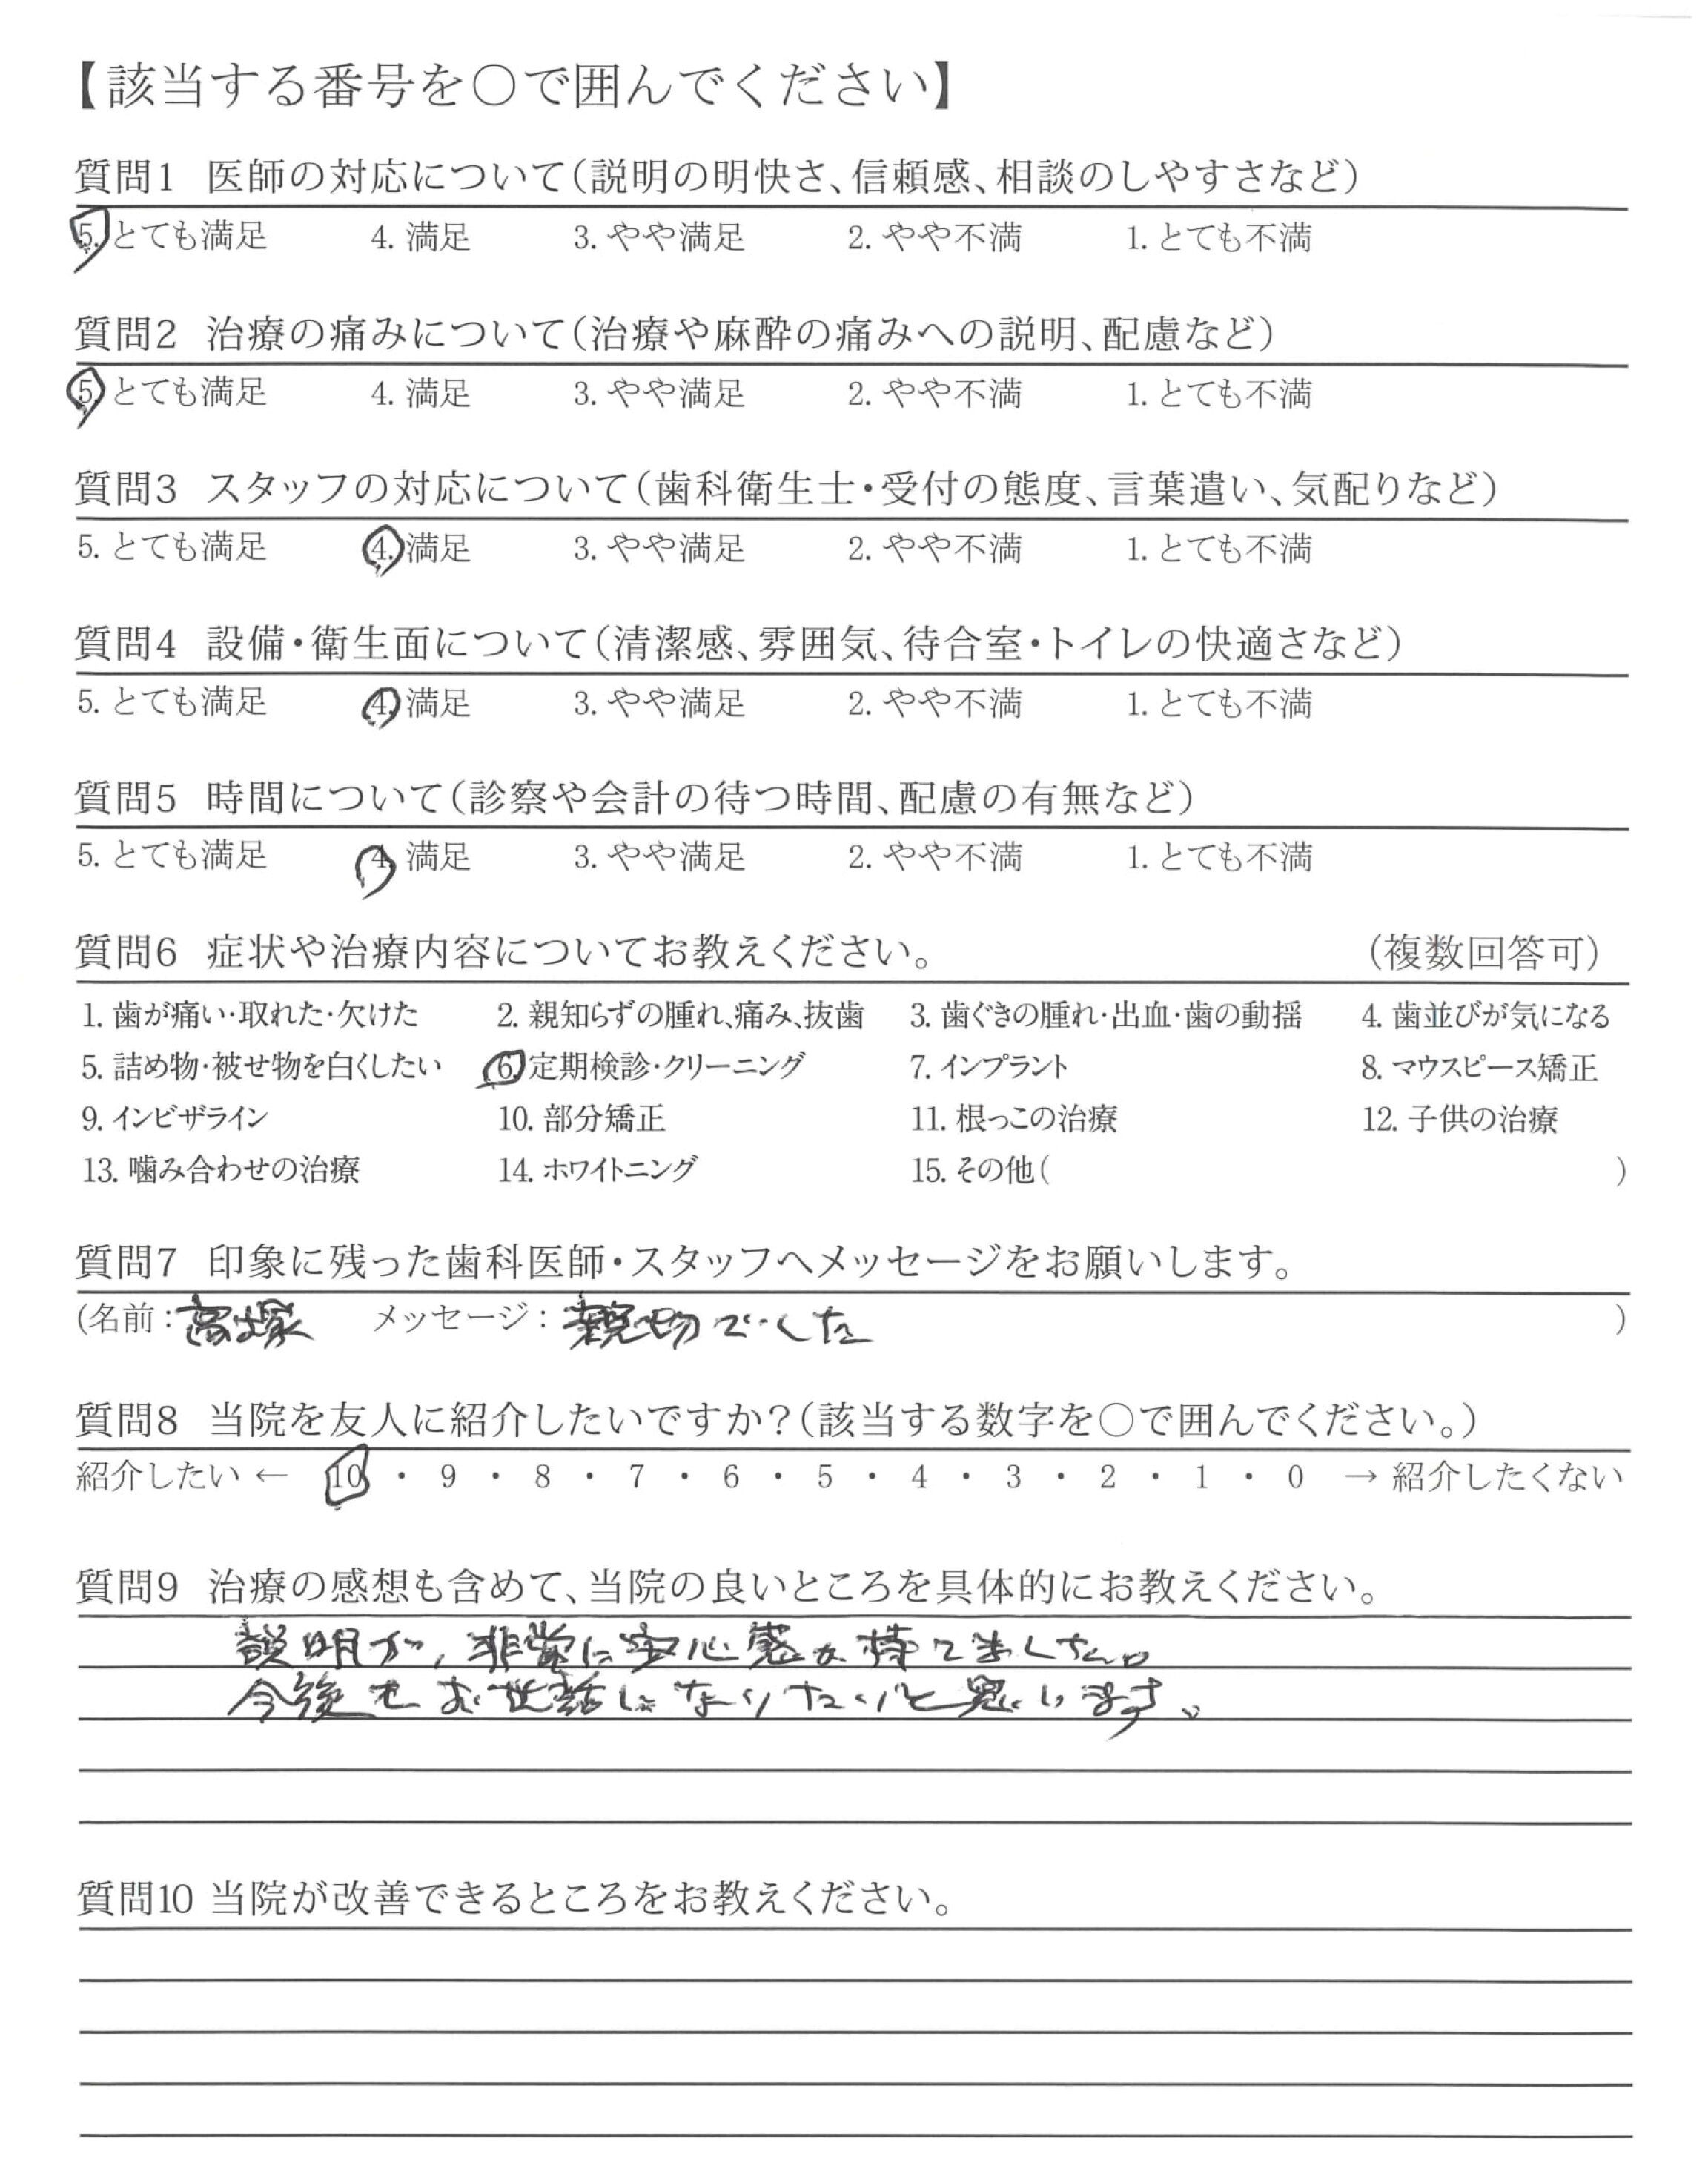 【該当する番号を○で囲んでください】
質問1 医師の対応について(説明の明快さ、信頼感、相談のしやすさなど)
5. とても満足 4. 満足 3. やや満足 2. やや不満 1. とても不満
質問2 治療の痛みについて(治療や麻酔の痛みへの説明、配慮など)
5. とても満足 4. 満足 3. やや満足 2. やや不満 1. とても不満
質問3 スタッフの対応について(歯科衛生士・受付の態度、言葉遣い、気配りなど)
5. とても満足 4. 満足 3. やや満足 2. やや不満 1. とても不満
質問4 設備・衛生面について(清潔感、雰囲気、待合室・トイレの快適さなど)
5. とても満足 4. 満足 3. やや満足 2. やや不満 1. とても不満
質問5 時間について(診察や会計の待つ時間、配慮の有無など)
5. とても満足 4. 満足 3. やや満足 2. やや不満 1. とても不満
質問6 症状や治療内容についてお教えください。 (複数回答可)
1. 歯が痛い・取れた・欠けた 2. 親知らずの腫れ、痛み、抜歯 3. 歯ぐきの腫れ・出血・歯の動揺 4. 歯並びが気になる
5. 詰め物・被せ物を白くしたい 6. 定期検診・クリーニング 7. インプラント 8. マウスピース矯正
9. インビザライン 10. 部分矯正 11. 根っこの治療 12. 子供の治療
13. 噛み合わせの治療 14. ホワイトニング 15. その他( )
質問7 印象に残った歯科医師・スタッフへメッセージをお願いします。
(名前: 高塚 メッセージ: 親切でした )
質問8 当院を友人に紹介したいですか?(該当する数字を○で囲んでください。)
紹介したい ← 10 ・ 9 ・ 8 ・ 7 ・ 6 ・ 5 ・ 4 ・ 3 ・ 2 ・ 1 ・ 0 → 紹介したくない
質問9 治療の感想も含めて、当院の良いところを具体的にお教えください。
説明が、非常に安心感が持てました。
今後もお世話になりたいと思います。
質問10 当院が改善できるところをお教えください。